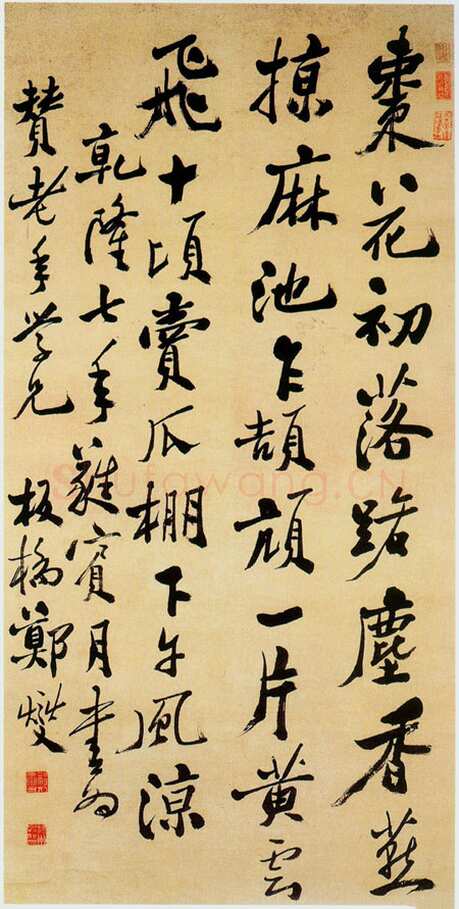 棗花初落路塵香燕
掠麻池乍頡頏一片黃雲
飛十頃賣瓜棚下午風涼
乾隆七年蕤賓月書為
賛老年学兄 板橋鄭燮
Shufawang.CN